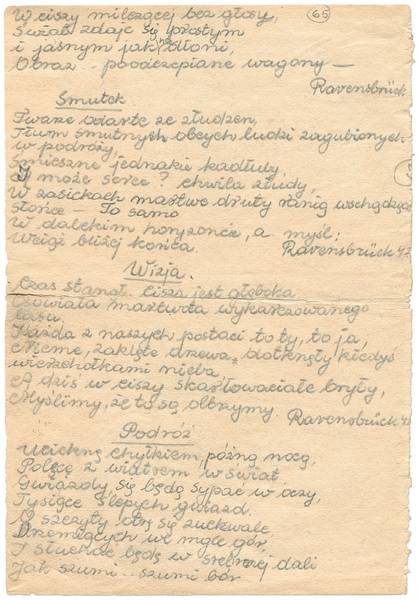 W ciszy milczącej bez głosy,
Świat zdaje się prostym
i jasnym jak dłoni,
Obraz.. poodczepiane wagony —
Ravensbrück
65
Smutek
Twarze odarte ze złudzeń,
Tłum smutnych obcych ludzi zagubionych
w podróży,
Śmieszne jednakie kadłuby,
I może serce? chwila złudy,
W zasiekach martwe druty ranią wschodzące
słońce — To samo
W dalekim horyzoncie, a myśl:
Wciąż bliżej końca.
Ravensbrück 42
Wizja.
Czas stanął. Cisza jest głęboka
Osowiała martwota wykarczowanego
lasu.
Każda z naszych postaci to ty, to ja,
Nieme, zaklęte drzewa, dotknęły kiedyś
wierzchołkami nieba,
A dziś w ciszy skarłowaciałe bryły,
Myślimy, że to są olbrzymy.
Ravensbrück
Podróż
Ucieknę chyłkiem późną nocą,
Polecę z wiatrem w świat,
Gwiazdy się będą sypać w oczy,
Tysiące ślepych gwiazd,
O szczyty otrę się zuchwale
Drzemiących we mgle gór,
I słuchać będę w srebrnej dali
Jak szumi.. szumi bór